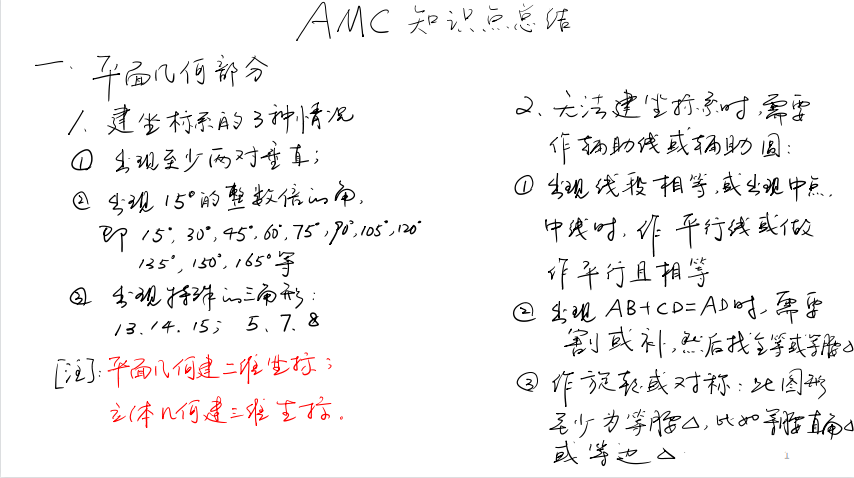 AMC 知识点总结
一. 平面几何部分
1. 建坐标系的3种情况
① 出现至少两对垂直;
② 出现15°的整数倍的角,
即 15°, 30°, 45°, 60°, 75°, 90°, 105°, 120°
135°, 150°, 165° 等
③ 出现特殊的三角形:
13. 14. 15; 5、7、8
[注]: 平面几何建二维坐标;
立体几何建三维坐标.
2. 无法建坐标系时,需要
作辅助线或辅助圆:
① 出现线段相等,或出现中点.
中线时, 作 平行线或做
作平行且相等
② 出现 AB+CD=AD时, 需要
割或补, 然后找全等或等腰△
③ 作旋转或对称: 此图形
至少为等腰△, 比如等腰直角△
或 等边 △
1